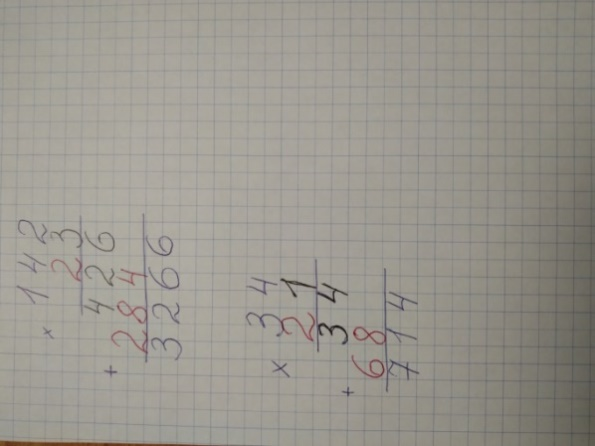 × 142
23
426
+ 284
3266
× 34
21
34
+ 68
714